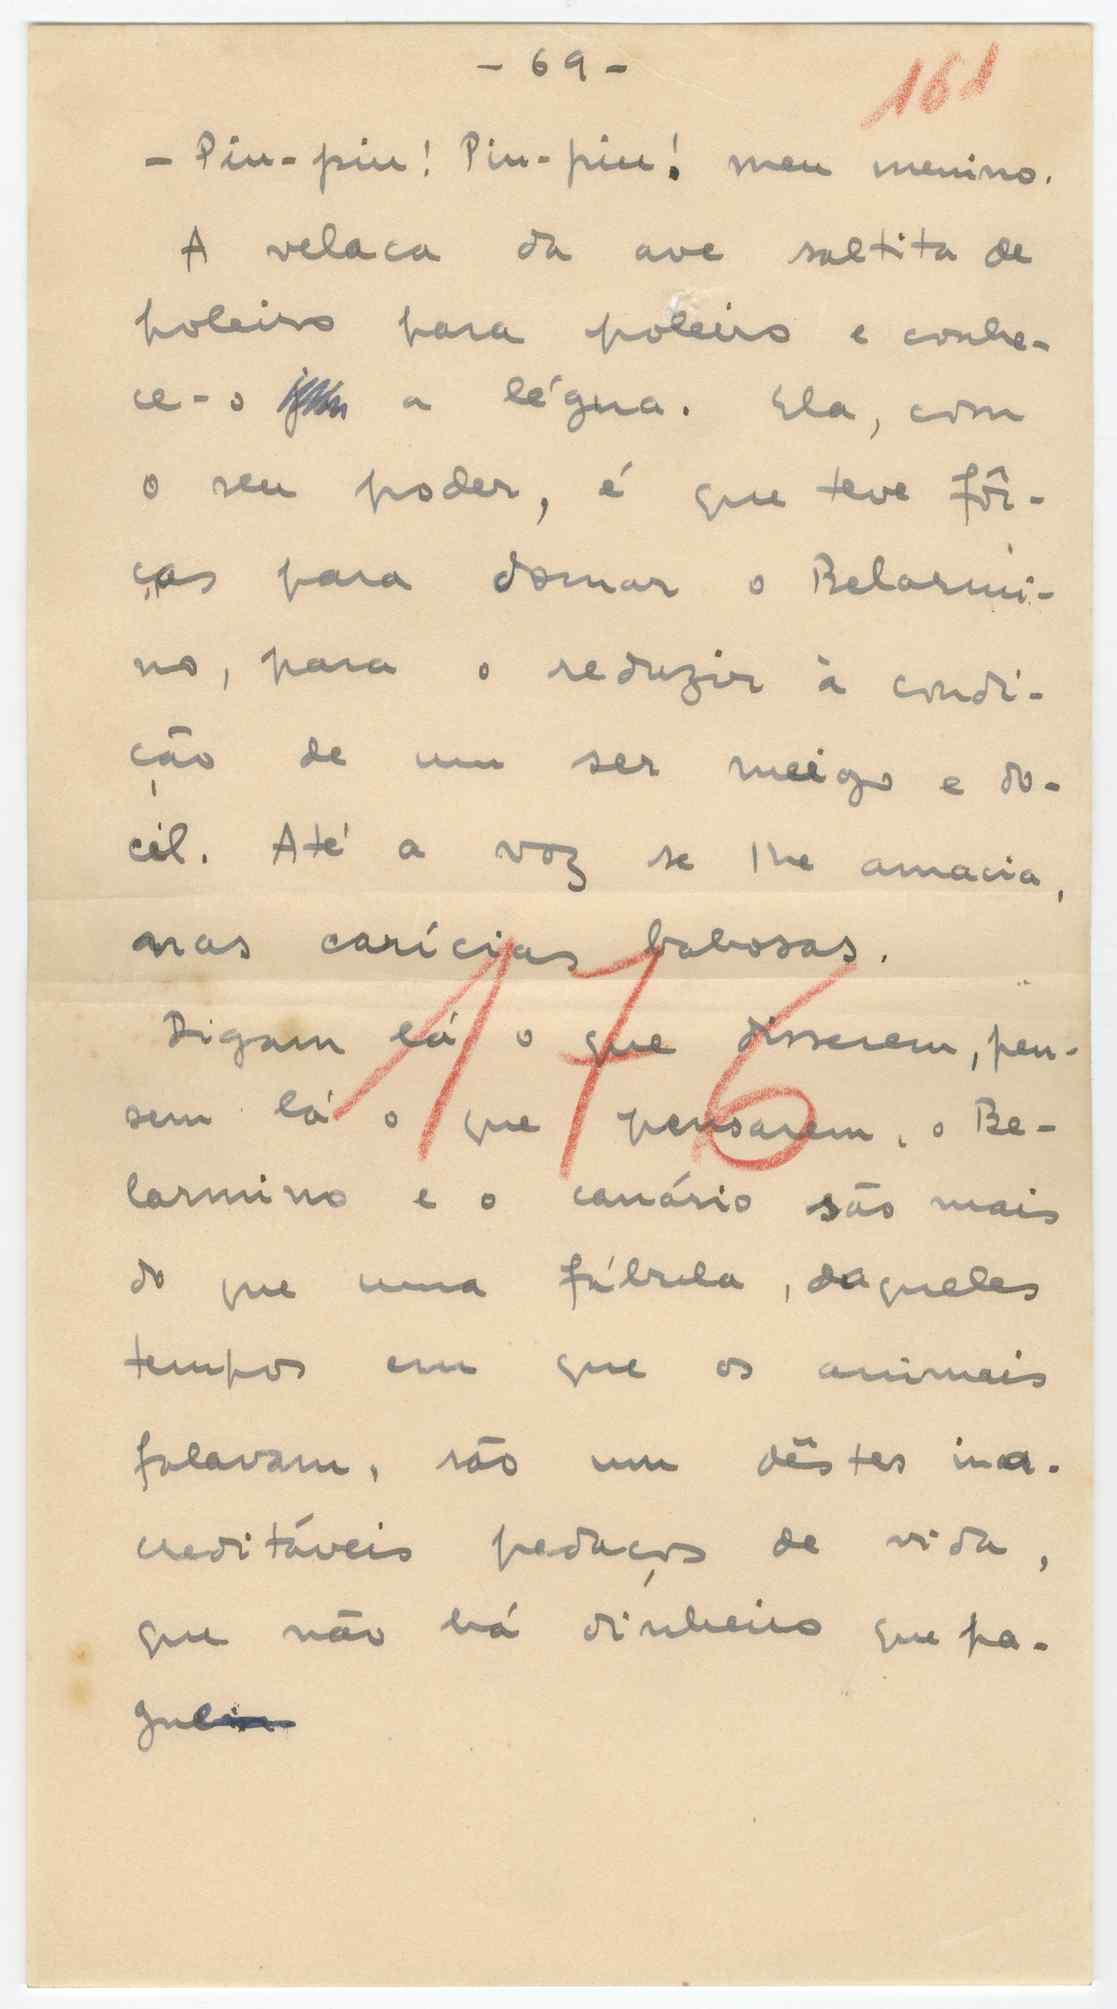 - 69 -
161
- Piu-piu! Piu-piu! meu menino.
A velaca da ave saltita de
poleiro para poleiro e conhe-
ce-o a légua. Ela, com
o seu poder, é que teve fôr-
ças para domar o Belarmi-
no, para o reduzir à condi-
ção de um ser meigo e do-
cil. Até a voz se lhe amacia,
nas carícias babosas.
176
Digam lá o que disserem, pen-
sem lá o que pensarem, o Be-
larmino e o canário são mais
do que uma fábula, daqueles
tempos em que os animais
falavam, são um dêstes ina-
creditáveis pedaços de vida,
que não há dinheiro que pa-
gue